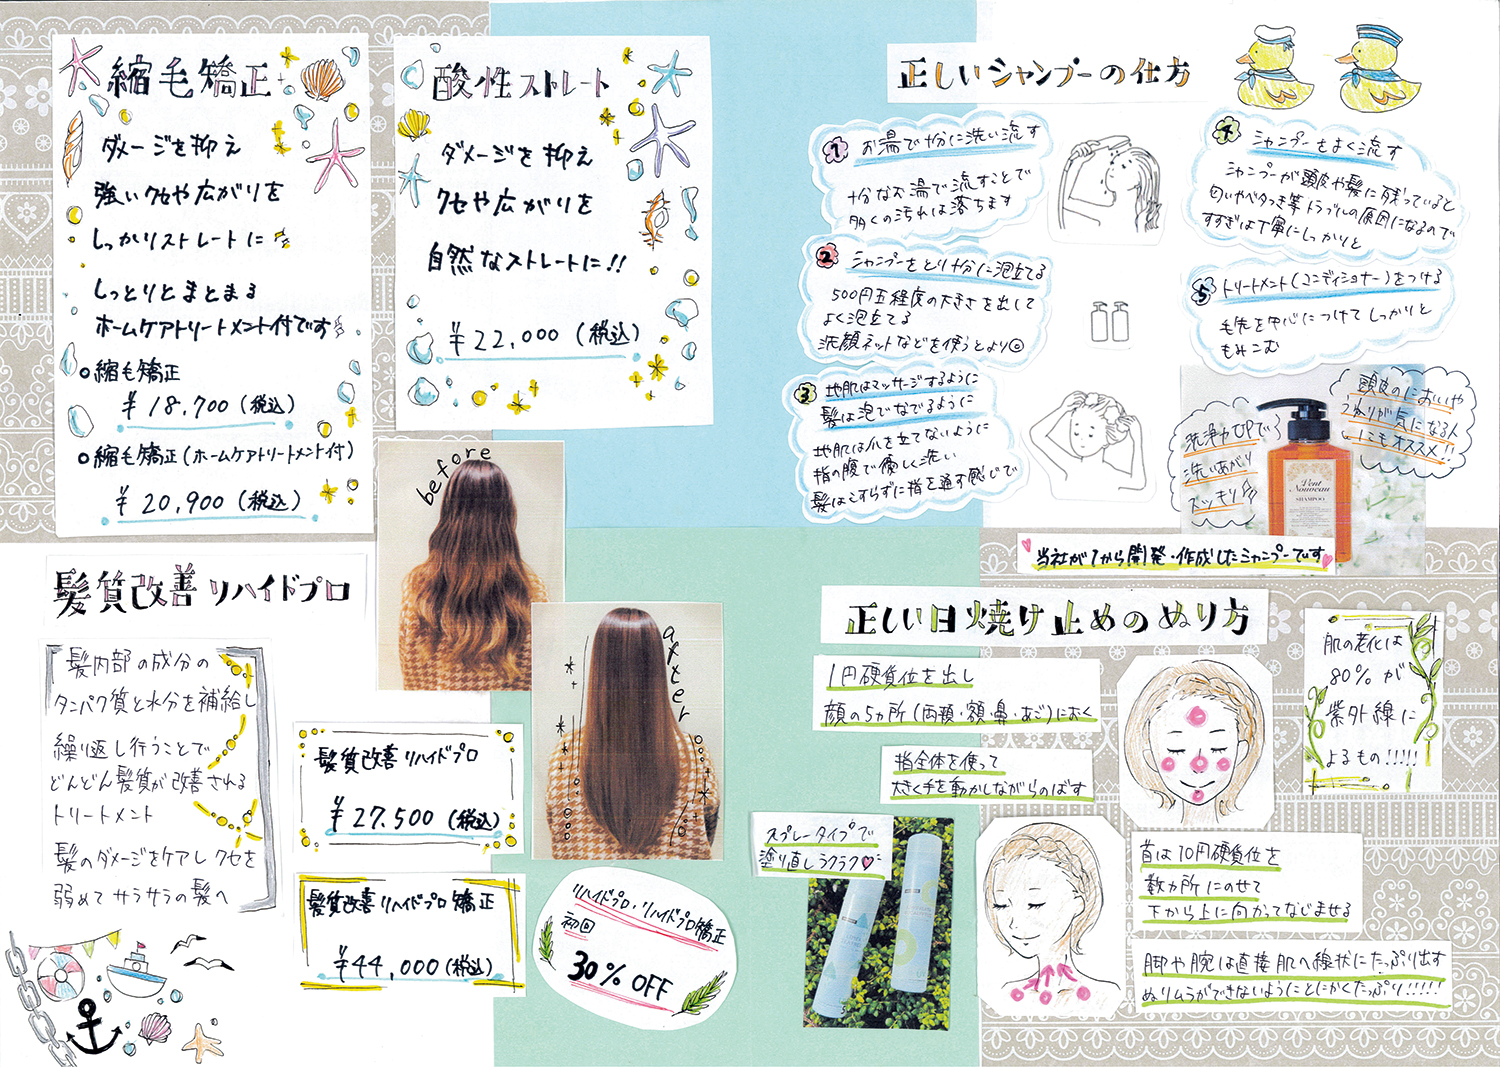 縮毛矯正
ダメージを抑え
強いクセや広がりを
しっかりストレートに
しっとりとまとまる
ホームケアトリートメント付です
縮毛矯正
¥18,700(税込)
縮毛矯正(ホームケアトリートメント付)
¥20,900(税込)
酸性ストレート
ダメージを抑え
クセや広がりを
自然なストレートに!!
¥22,000(税込)
髪質改善リハイドプロ
髪内部の成分の
タンパク質と水分を補給し
繰り返し行うことで
どんどん髪質が改善される
トリートメント
髪のダメージをケアしクセを
弱めてサラサラの髪へ
before
after
髪質改善リハイドプロ
¥27,500(税込)
髪質改善リハイドプロ矯正
¥44,000(税込)
リハイドプロ・リハイドプロ矯正
初回
30%OFF
正しいシャンプーの仕方
1 お湯で十分に洗い流す
十分なお湯で流すことで
多くの汚れは落ちます
2 シャンプーをとり十分に泡立てる
500円玉程度の大きさを出して
よく泡立てる
洗顔ネットなどを使うとより◎
3 地肌はマッサージするように
髪は泡でなでるように
地肌は爪を立てないように
指の腹で優しく洗い
髪はこすらずに指を通す感じで
4 シャンプーをよく流す
シャンプーが頭皮や髪に残っていると
匂いやベタつき等トラブルの原因になるので
すすぎは丁寧にしっかりと
5 トリートメント(コンディショナー)をつける
毛先を中心につけてしっかりと
もみこむ
頭皮のにおいや
うねりが気になる人
にもオススメ!!
洗浄力UPで
洗いあがり
スッキリ
Vent
Nouveau
SHAMPOO
当社が1から開発・作成したシャンプーです
正しい日焼け止めのぬり方
1円硬貨位を出し
顔の5ヵ所(両頬・額・鼻・あご)におく
指全体を使って
大きく手を動かしながらのばす
肌の老化は
80%が
紫外線に
よるもの!!!!!
スプレータイプで
塗り直しラクラク♡
首は10円硬貨位を
数ヵ所にのせて
下から上に向かってなじませる
脚や腕は直接肌へ線状にたっぷり出す
ぬりムラができないようにとにかくたっぷり!!!!!